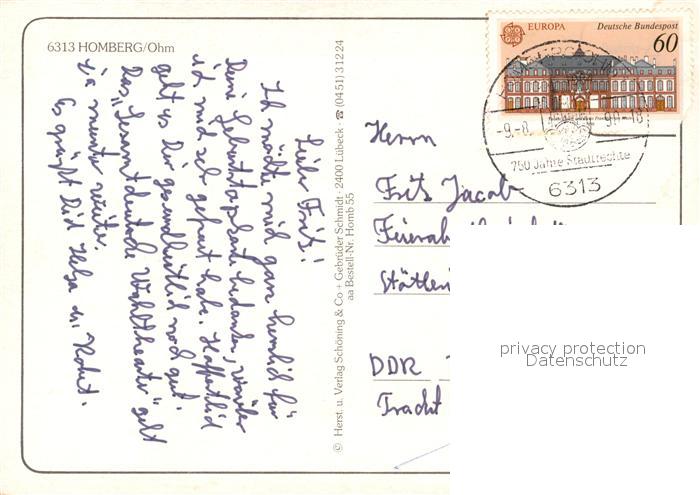 6313 HOMBERG/Ohm
Lieber Fritz!
Ich möchte mich ganz herzlich für
Deine Geburtstagskarte bedanken, worüber
ich mich sehr gefreut habe. Hoffentlich
geht es Dir gesundheitlich noch gut.
Das "Gesamtdeutsche Wahltheater" geht
ja munter weiter.
Es grüßt Dich Helga u.
© Herst. u. Verlag Schöning & Co + Gebrüder Schmidt · 2400 Lübeck · ☎ (0451) 31224
aa Bestell-Nr. Homb 55
EUROPA Deutsche Bundespost
60
-9.-8. 90-18
750 Jahre Stadtrechte
6313
Herrn
Fritz Jacob
DDR
Tracht
privacy protection
Datenschutz